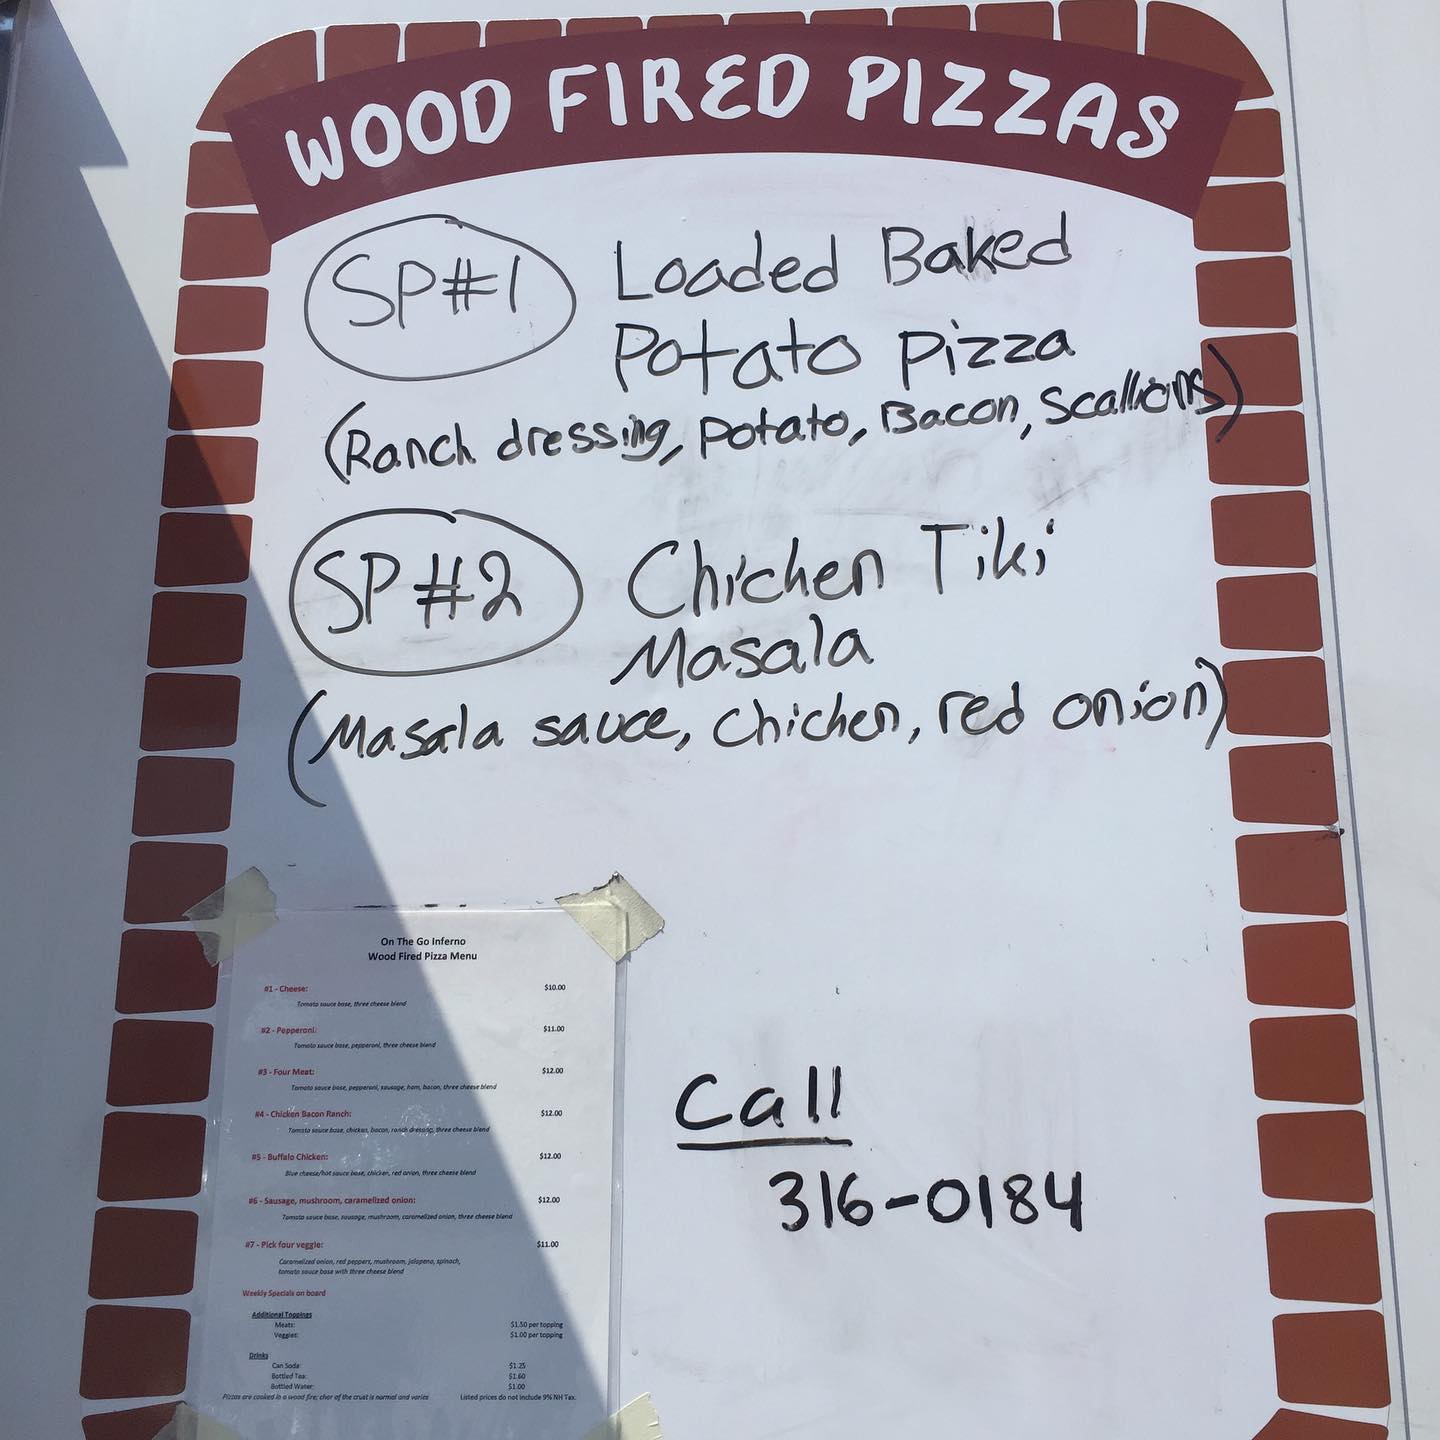 WOOD FIRED PIZZAS
SP#1 Loaded Baked
Potato Pizza
(Ranch dressing, Potato, Bacon, Scallions)
SP#2 Chicken Tiki
Masala
(Masala sauce, Chicken, red onion)
On The Go Inferno
Wood Fired Pizza Menu
#1 - Cheese: $10.00
Tomato sauce base, three cheese blend
#2 - Pepperoni: $11.00
Tomato sauce base, pepperoni, three cheese blend
#3 - Four Meat: $12.00
Tomato sauce base, pepperoni, sausage, ham, bacon, three cheese blend
#4 - Chicken Bacon Ranch: $12.00
Tomato sauce base, chicken, bacon, ranch dressing, three cheese blend
#5 - Buffalo Chicken: $12.00
Blue cheese/hot sauce base, chicken, red onion, three cheese blend
#6 - Sausage, mushroom, caramelized onion: $12.00
Tomato sauce base, sausage, mushroom, caramelized onion, three cheese blend
#7 - Pick four veggie: $11.00
Caramelized onion, red peppers, mushroom, jalapeno, spinach,
tomato sauce base with three cheese blend
Weekly Specials on board
Additional Toppings
Meats: $1.50 per topping
Veggies: $1.00 per topping
Drinks
Can Soda: $1.25
Bottled Tea: $1.60
Bottled Water: $1.00
Pizzas are cooked in a wood fire; char of the crust is normal and varies Listed prices do not include 9% NH Tax.
Call
316-0184